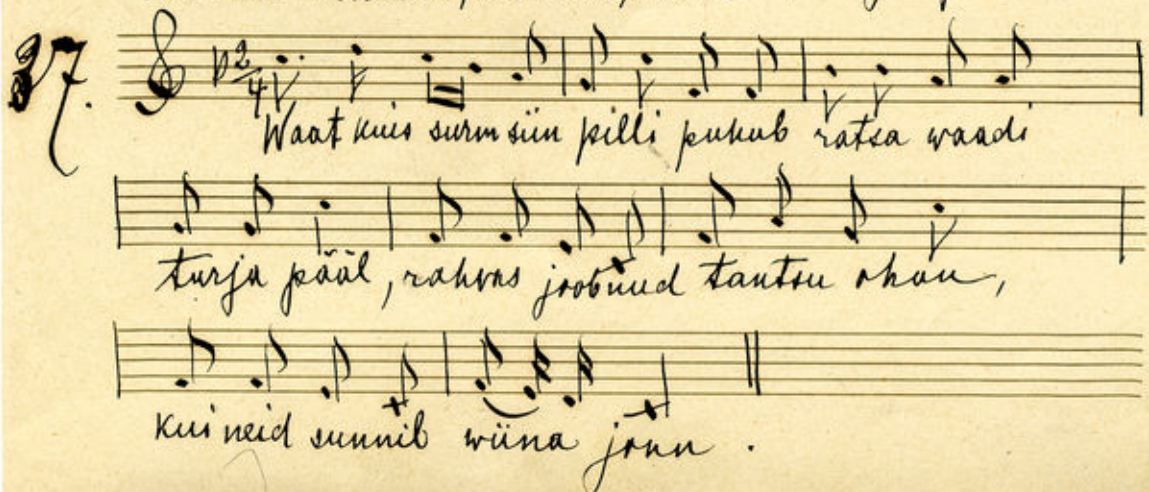 37.
2/4
Waat kuis surm siin pilli puhub ratsa waadi
turja pääl, rahvas joobnud tantsu ohau,
kui neid sunnib wiina jõuu.